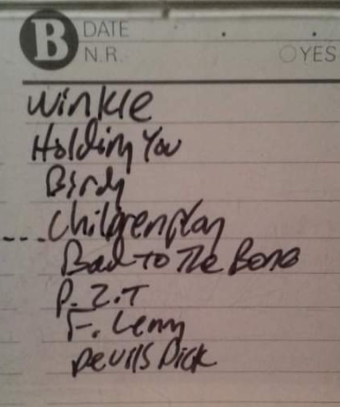 B DATE
N.R. YES
Winkle
Holding You
Birdy
Childrenplay
Bad To The Bone
P. Z. T
F. Lenny
Devils Dick